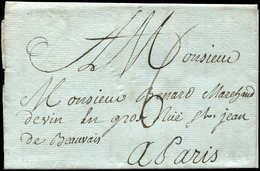 A Monsieur
Monsieur Benard Marchand
de vin en gros Rüe St. jean
de Beauvais
A Paris